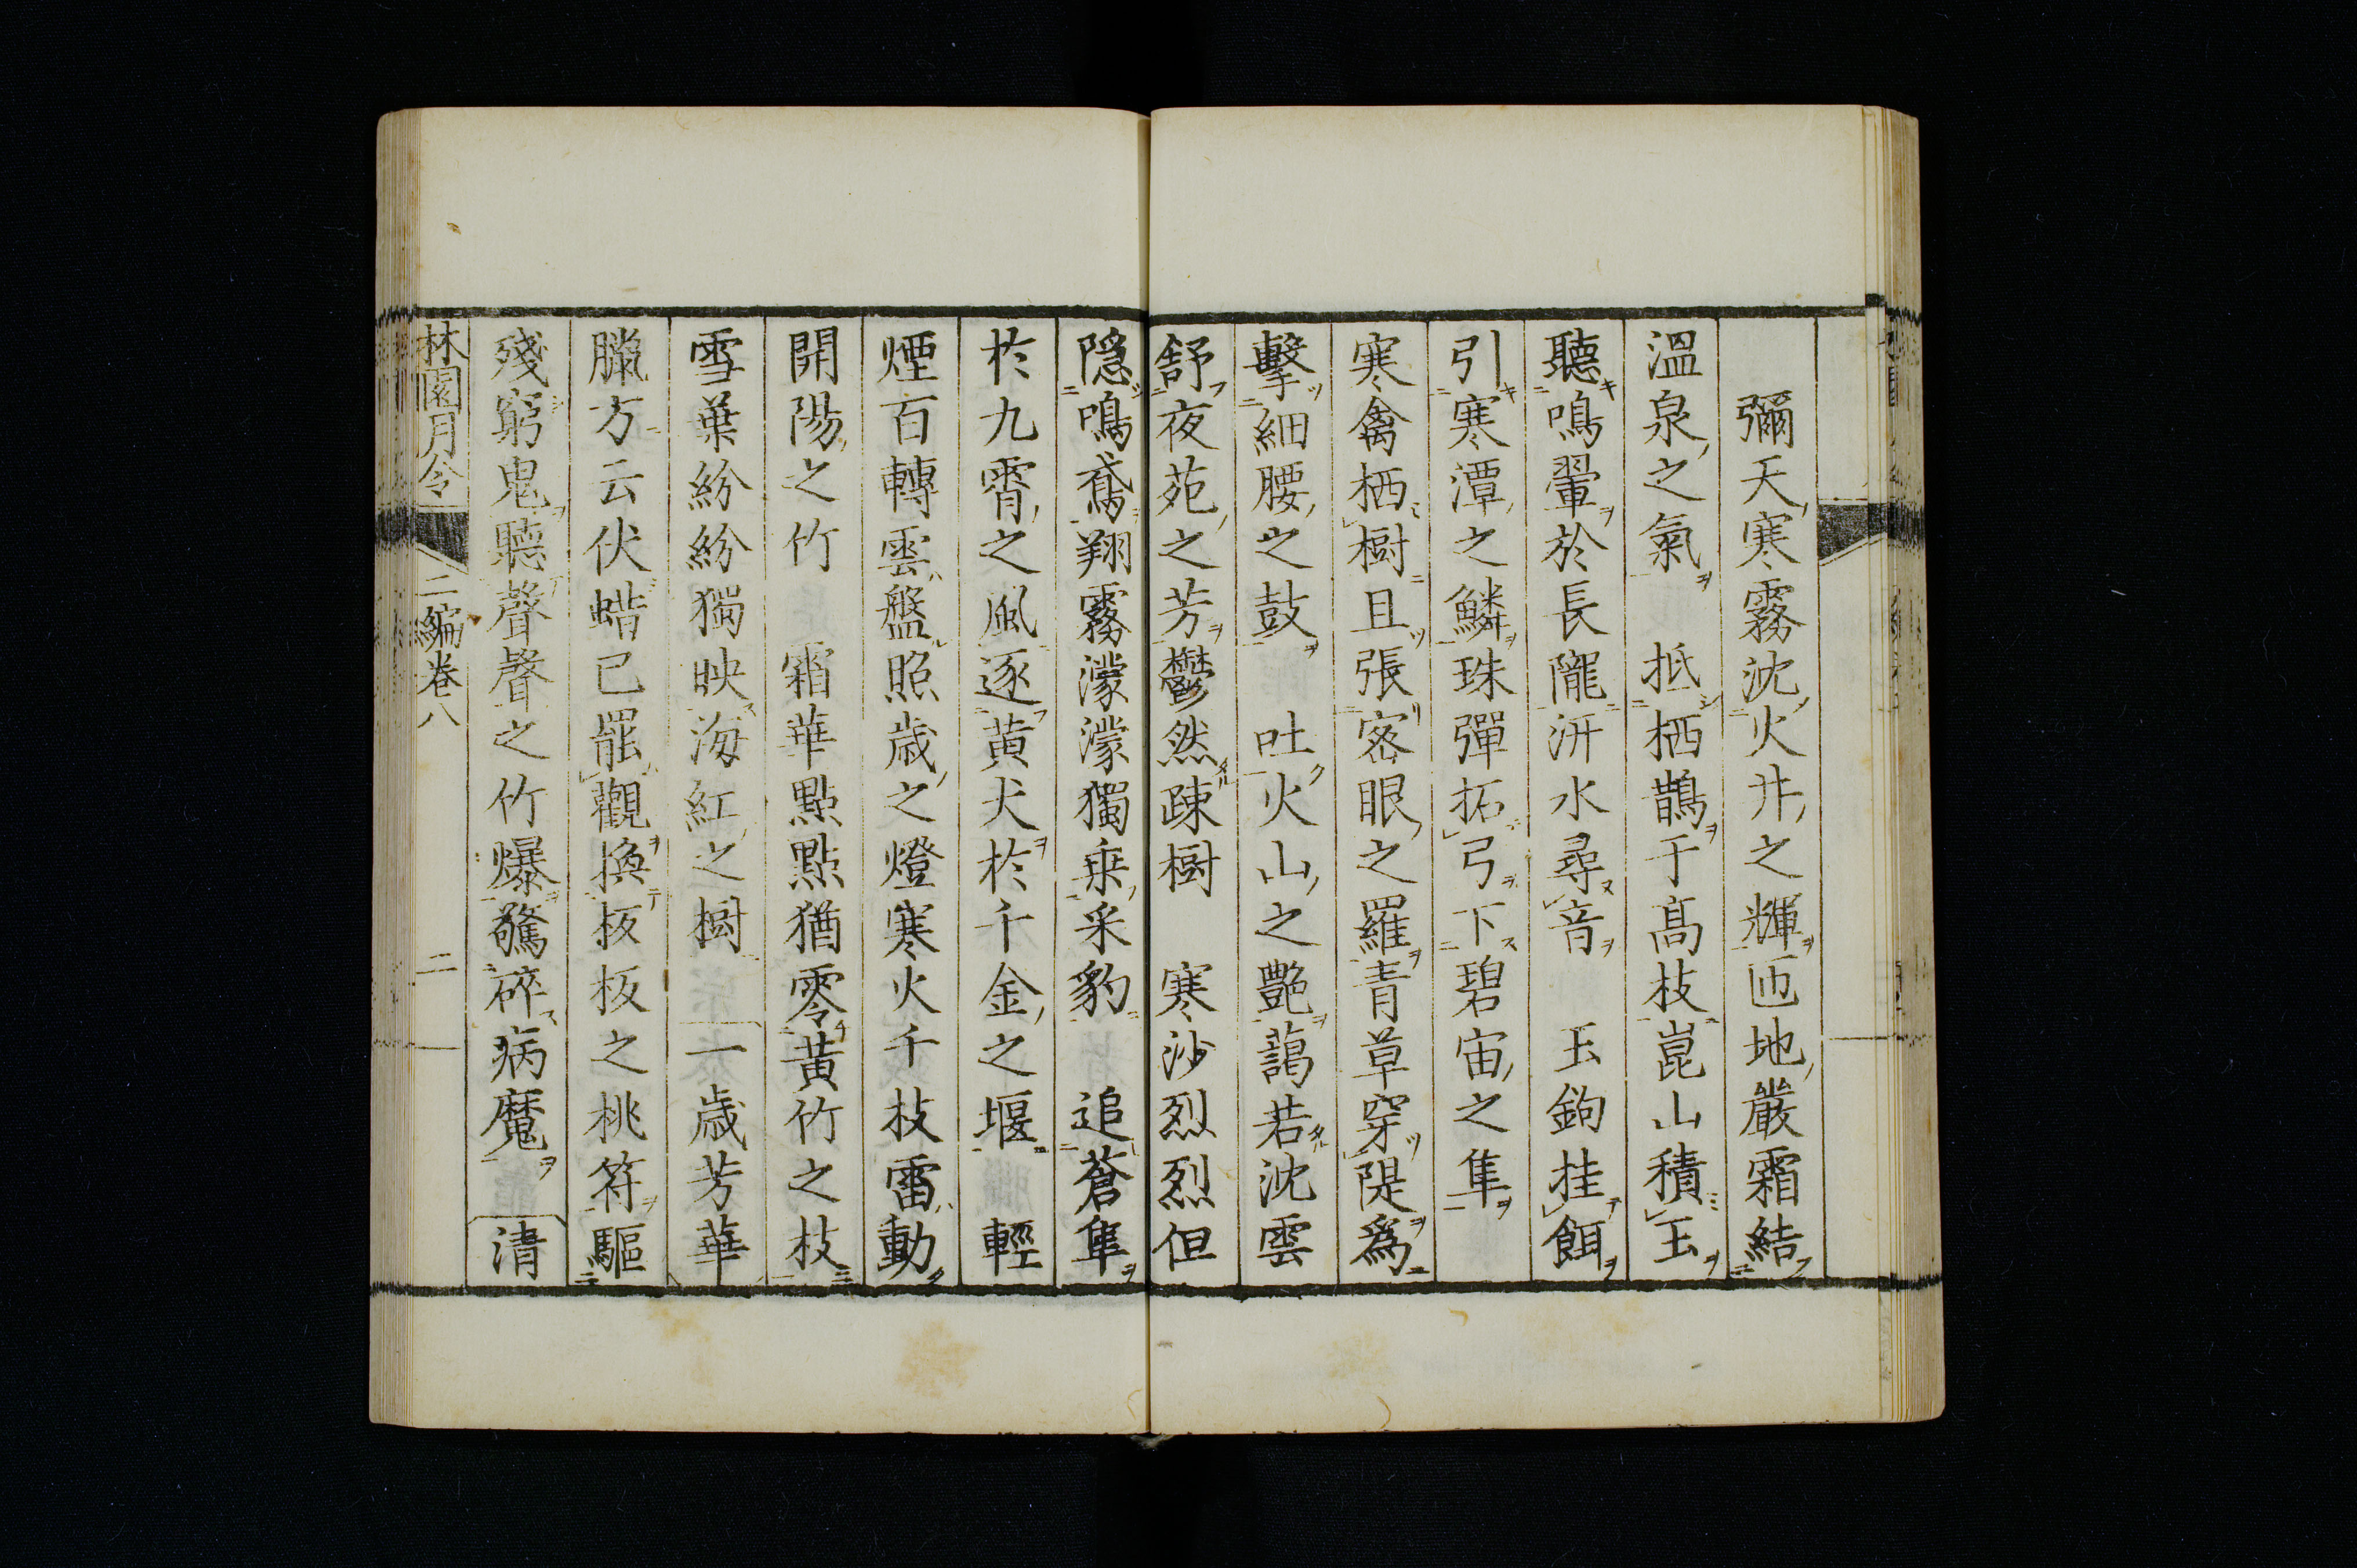 彌天寒霧沈火井之輝匝地嚴霜結
溫泉之氣　抵栖鵲于高枝崑山積玉
聽鳴翬於長隴汧水尋音　玉鉤挂餌
引寒潭之鱗珠彈拓弓下碧宙之隼
寒禽栖樹且張密眼之羅青草穿隄爲
擊細腰之鼓　吐火山之艷藹若沈雲
舒夜苑之芳鬱然疎樹　寒沙烈烈但
隱鳴鳶翔霧濛濛獨乘采豹　追蒼隼
於九霄之風逐黄犬於千金之堰　輕
煙百轉雲盤照歲之燈寒火千枝雷動
開陽之竹　霜華點點猶零黃竹之枝
雪葉紛紛獨映海紅之樹　一歲芳華
臘方云伏蜡已罷觀換板板之桃符驅
殘窮鬼聽聲聲之竹爆驚碎病魔　清
林園月令　二編卷八　二